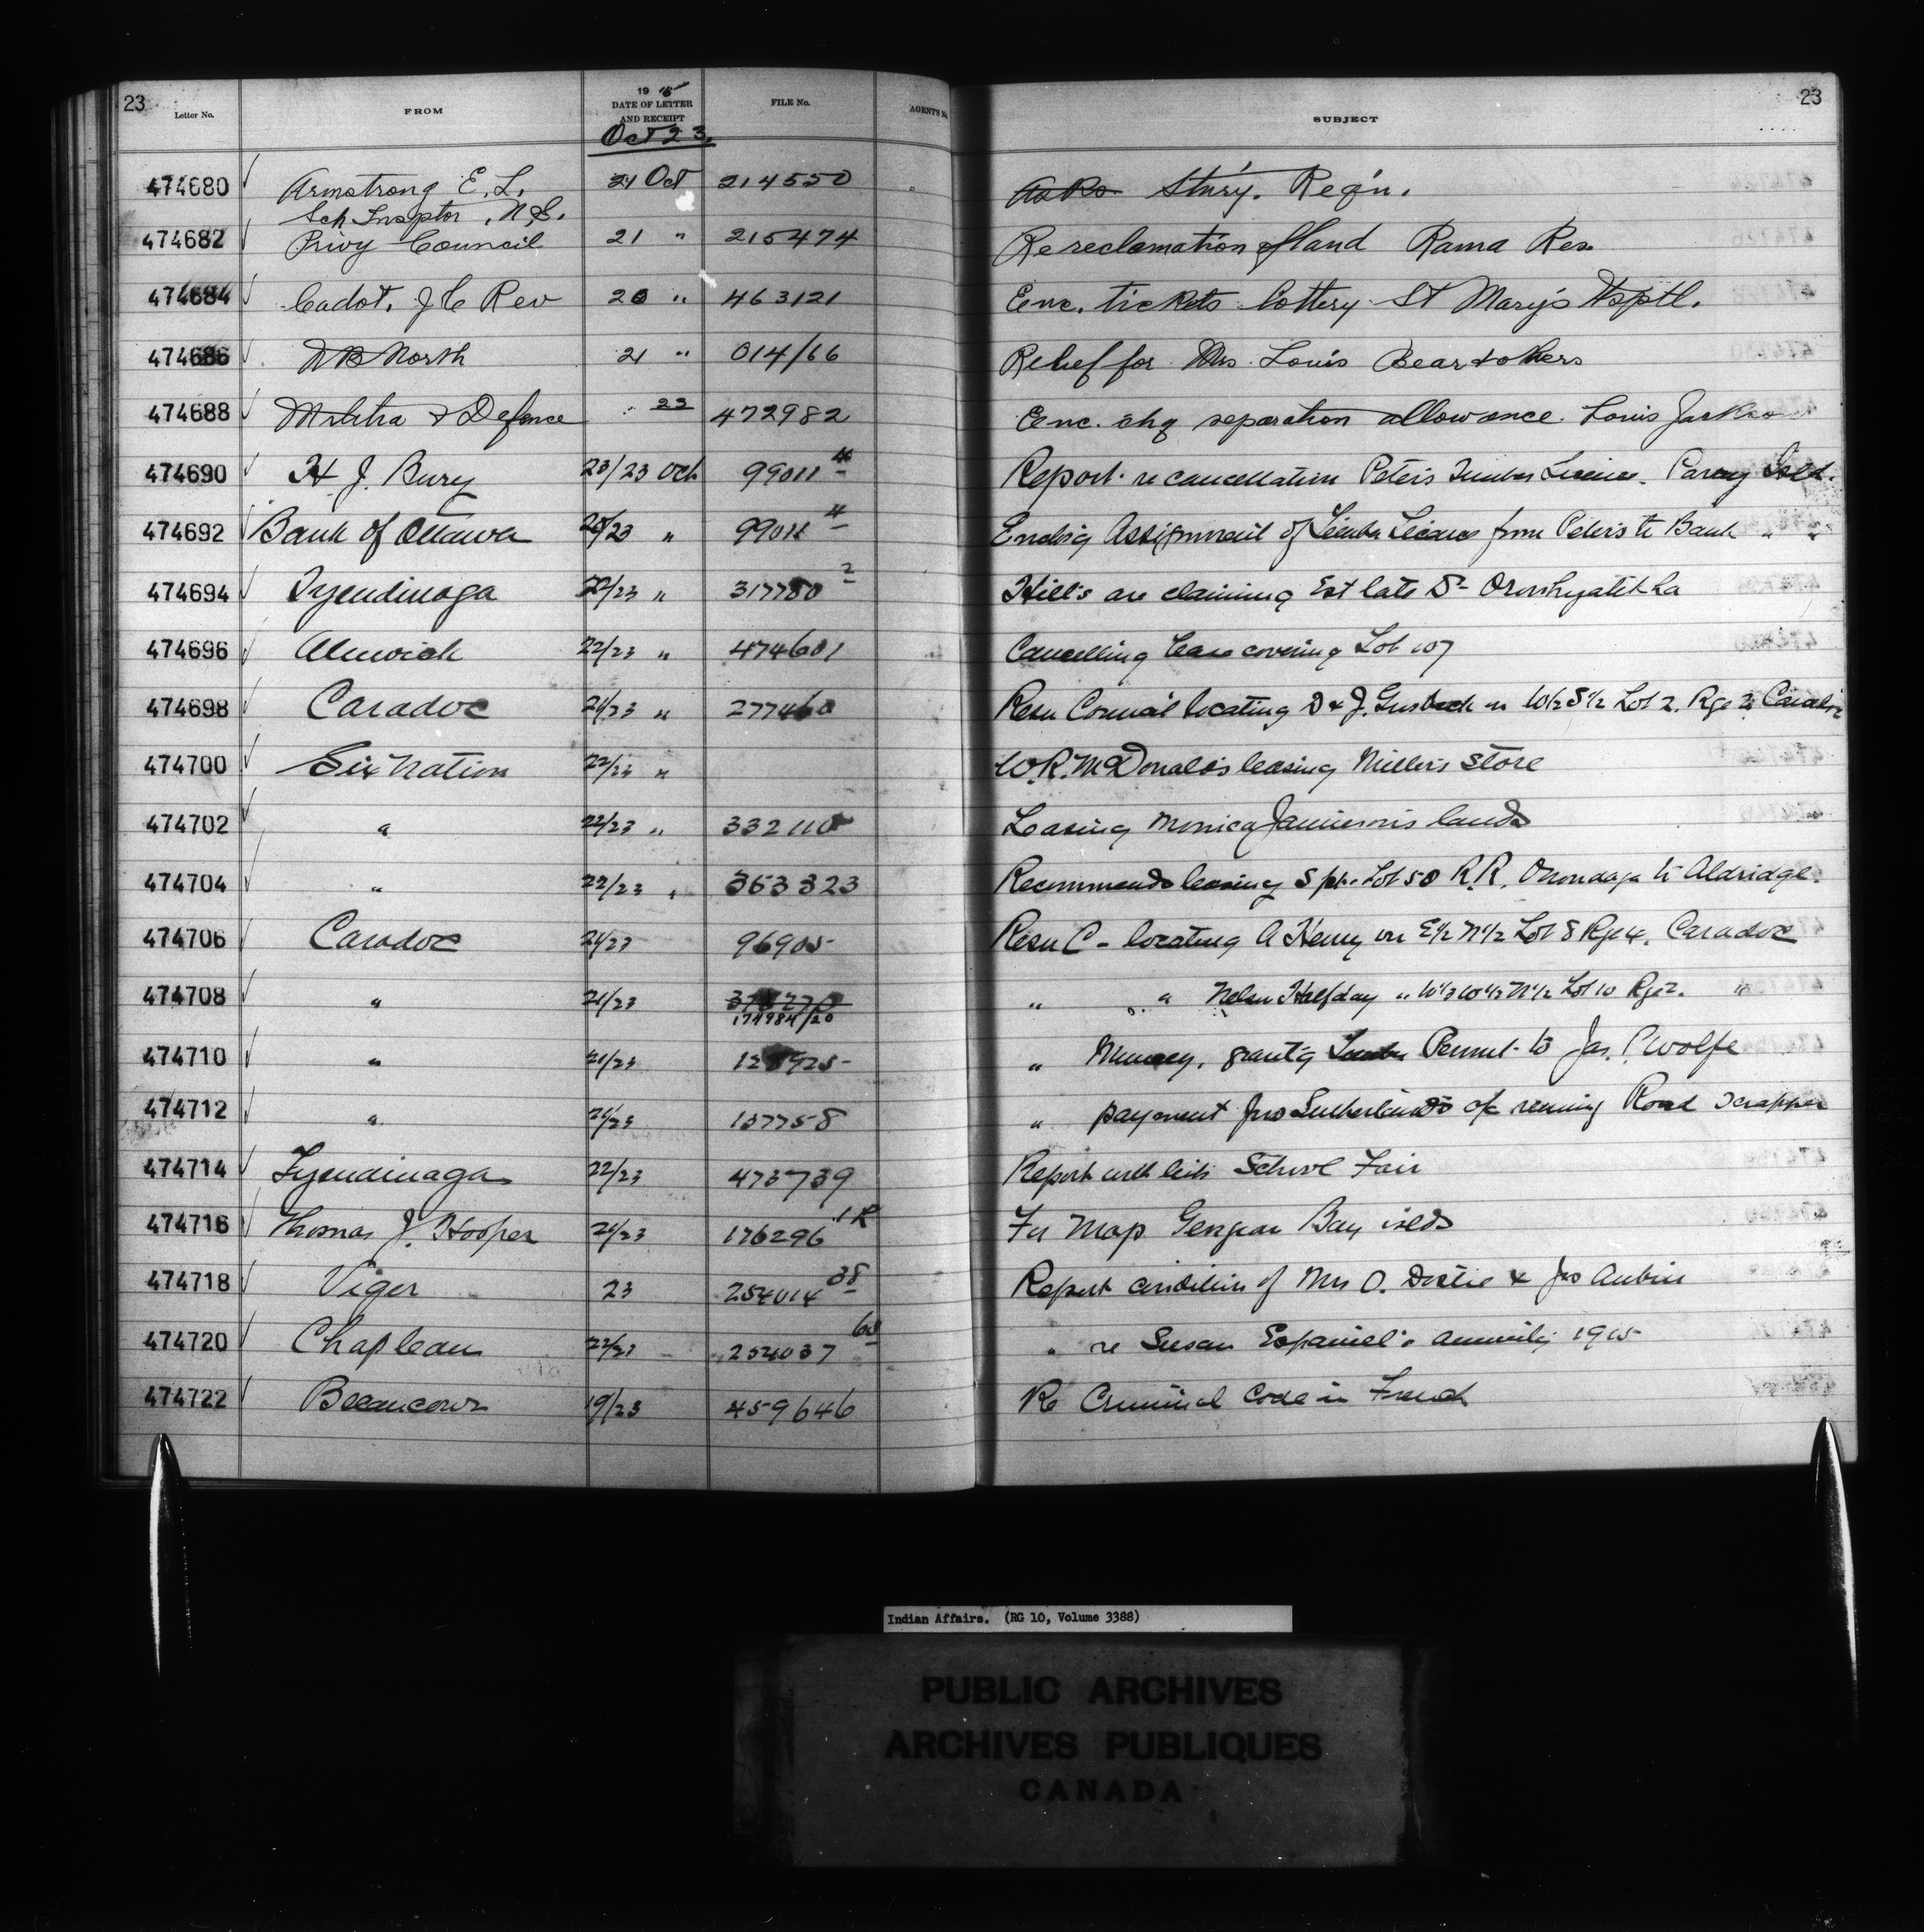 23
23
Letter No.
FROM
19 15
DATE OF LETTER
AND RECEIPT
FILE No.
AGENT'S No
SUBJECT
Oct 23.
474680 Armstrong E. L. 21 Oct 214550 Stn'ry. Reg'n.
Sch Insptor, N.S.
474682 Privy Council 21 " 215474 Re reclamation of land Rama Res
474684 Cadot, J C Rev 20 " 463121 Enc. tickets lottery St Mary's Hsptl.
474686 D B North 21 " 014/66 Relief for Mrs. Louis Bear & others
474688 Militia & Defence 23 472982 Enc. chq separation allowance. Louis Jackson
474690 H J. Bury 23/23 Oct 99011 4 Report re cancellation Peter's Timber Licence. Isld.
474692 Bank of Ottawa /23 " 99011 4 Enclsg Assignment of Timber Licence from Peters to Bank " "
474694 Tyendinaga 22/23 " 317780 2 Hill's are claiming Est late Dr Oronhyatekha
474696 Alnwick 22/23 " 474601 Cancelling lease covering Lot 107
474698 Caradoc 21/23 " 277460 Resn Council locating D & J. on W1/2 S1/2 Lot 2. Rge 2 Caradoc
474700 Six Nation 22/23 " W.R. McDonald's leasing Miller's Store
474702 " 22/23 " 332110 Leasing Monica Jamieson's lands
474704 " 22/23 " 363323 Recommends leasing S pt. Lot 50 R.R. Onondaga to Aldridge.
474706 Caradoc 21/23 96905 Resn C - locating A Henry on E1/2 N1/2 Lot 8 Rge 4. Caradoc
474708 " 21/23 " " Nelson Halfday " W1/2 W1/2 N1/2 Lot 10 Rge 2. "
174984/20
474710 " 21/23 " Muncey, grant'g Permit to Jas. Wolfe
474712 " 21/23 157758 " payment Jno Sutherland's a/c Road Scrapper
474714 Tyendinaga 22/23 473739 Report with lists School Fair
474716 Thomas J. Hooper 21/23 176296 1R For Map Georgian Bay islds
474718 Viger 23 254014 38 Report condition of Mrs O. & Jno Aubin
474720 Chapleau 22/23 254037 " re Susan Espaniel's annuity 1915
474722 Becancour 19/23 459646 Re Criminal Code in French
Indian Affairs. (RG 10, Volume 3388)
PUBLIC ARCHIVES
ARCHIVES PUBLIQUES
CANADA